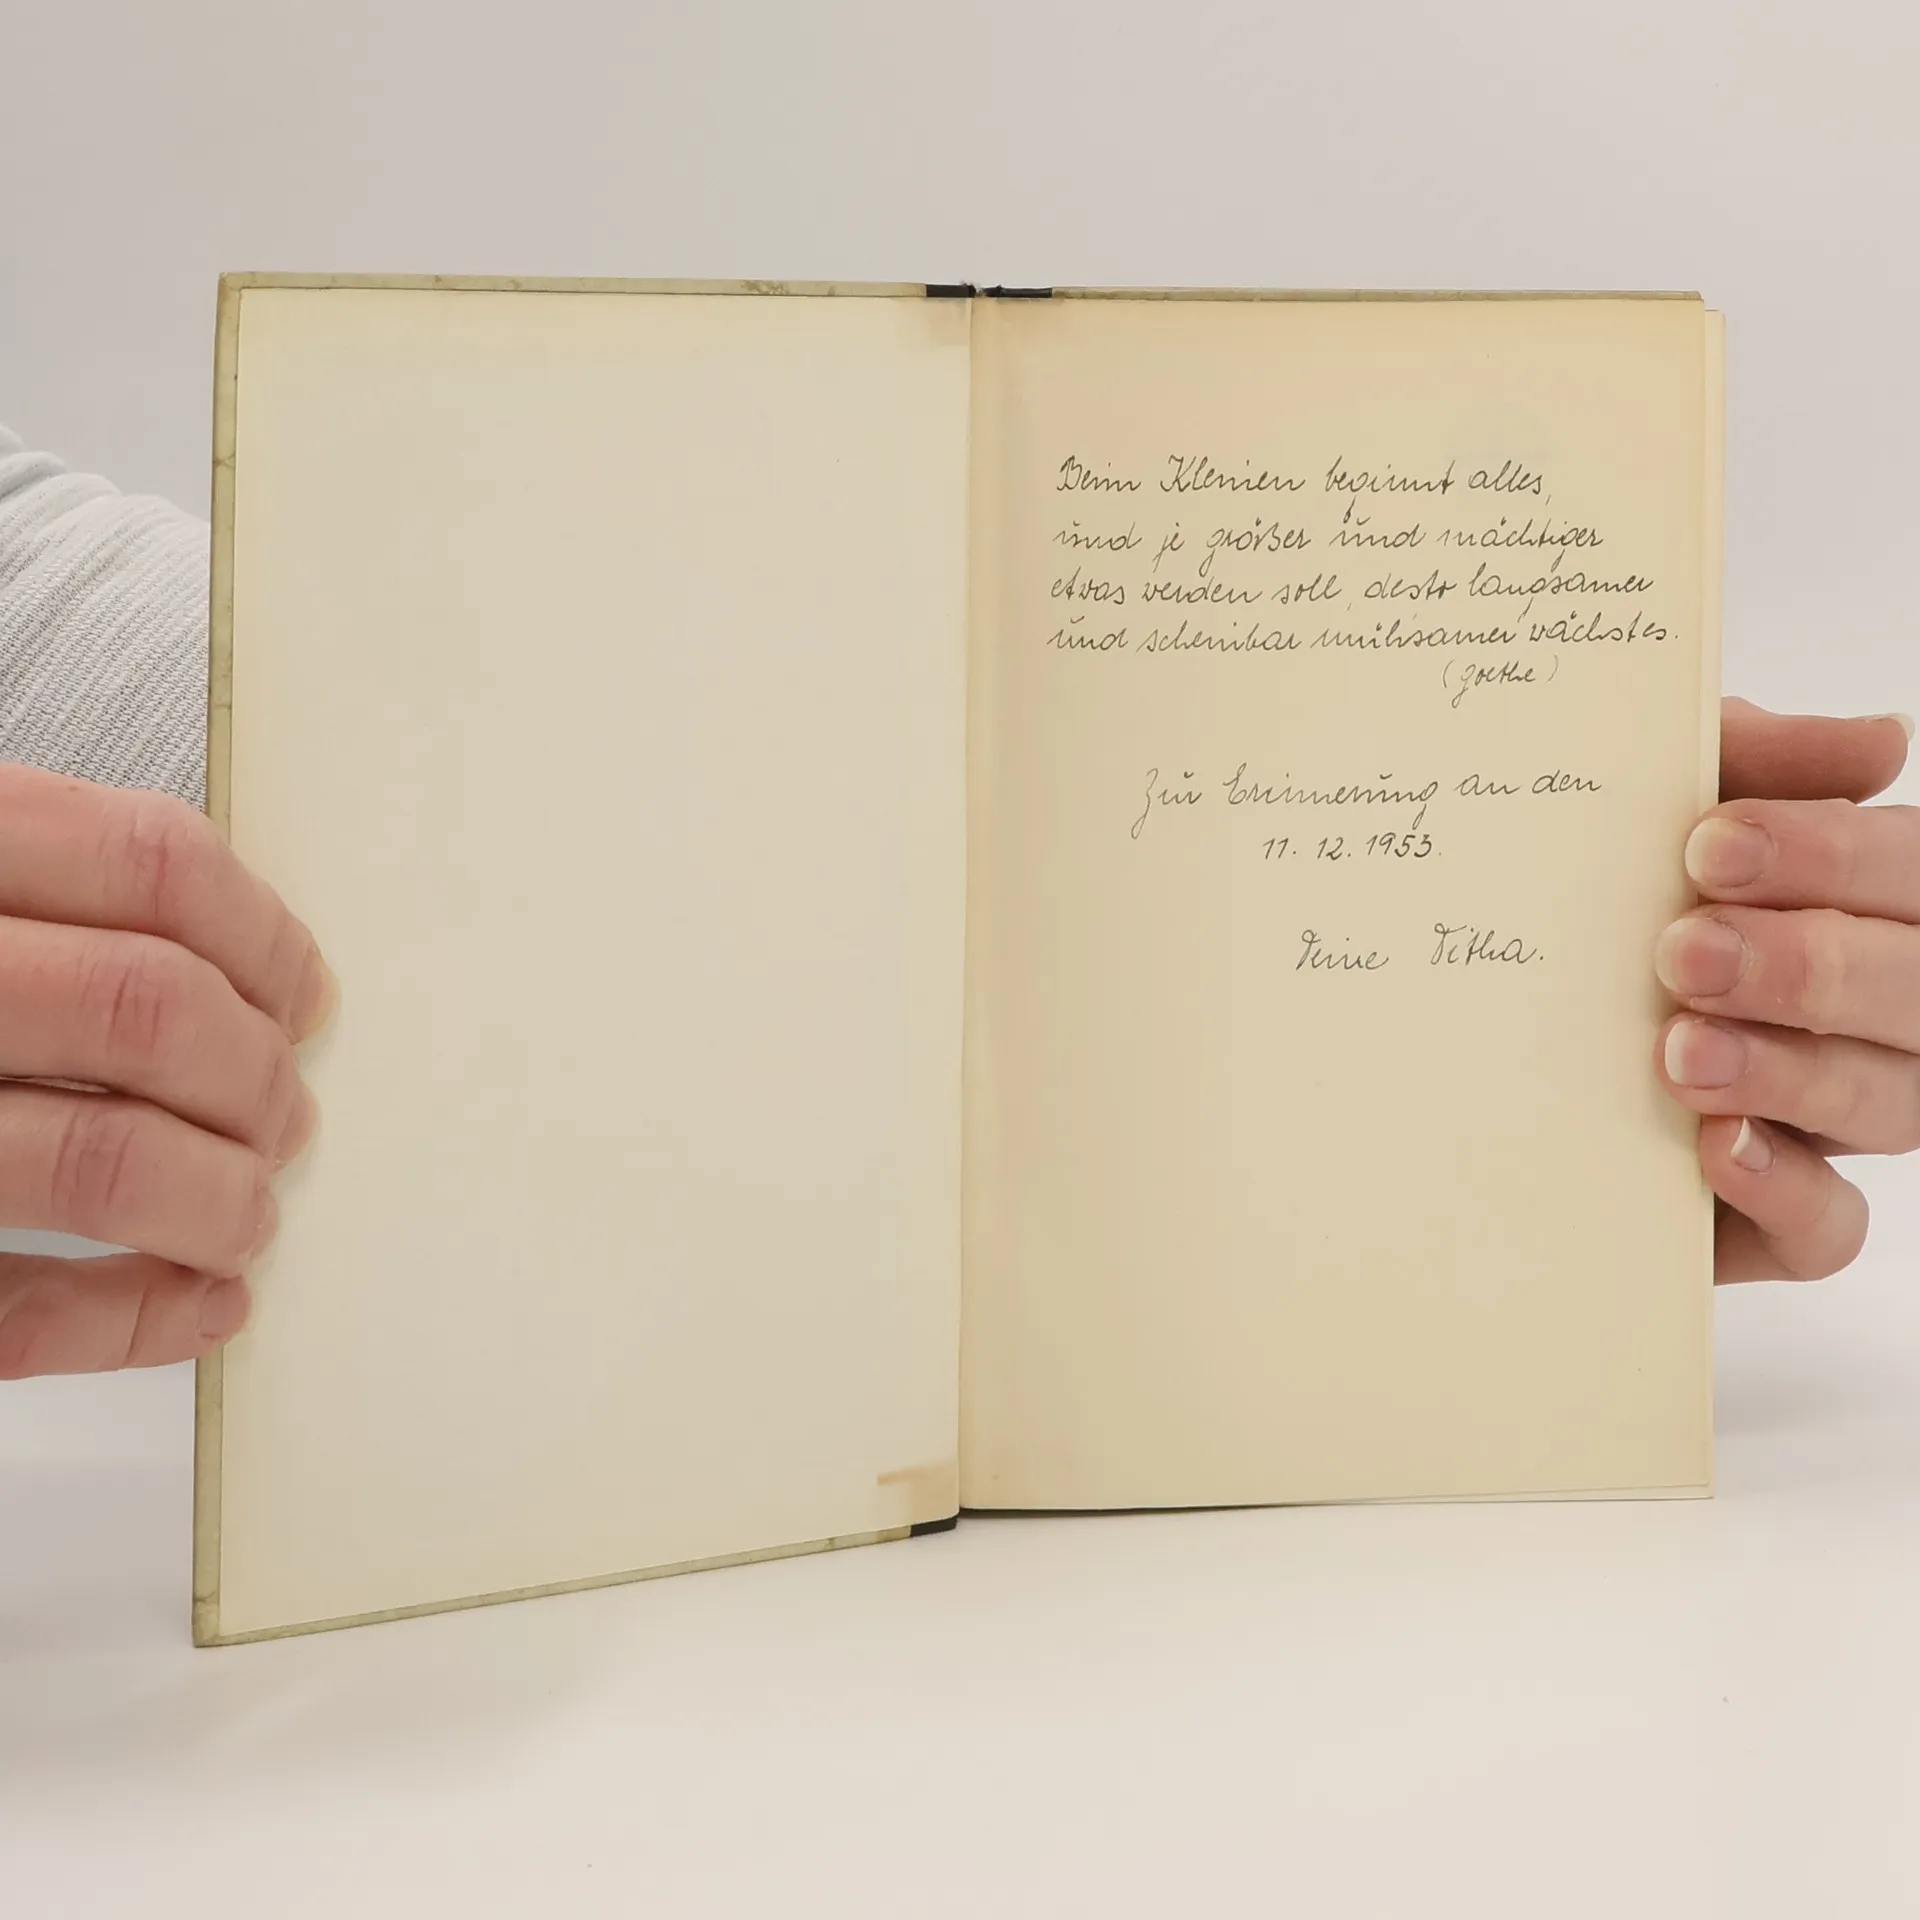 Beim Kleinen beginnt alles,
und je größer und mächtiger
etwas werden soll, desto langsamer
und scheinbar mühsamer wächst es.
(Goethe)
Zur Erinnerung an den
11. 12. 1953.
Deine Ditha.